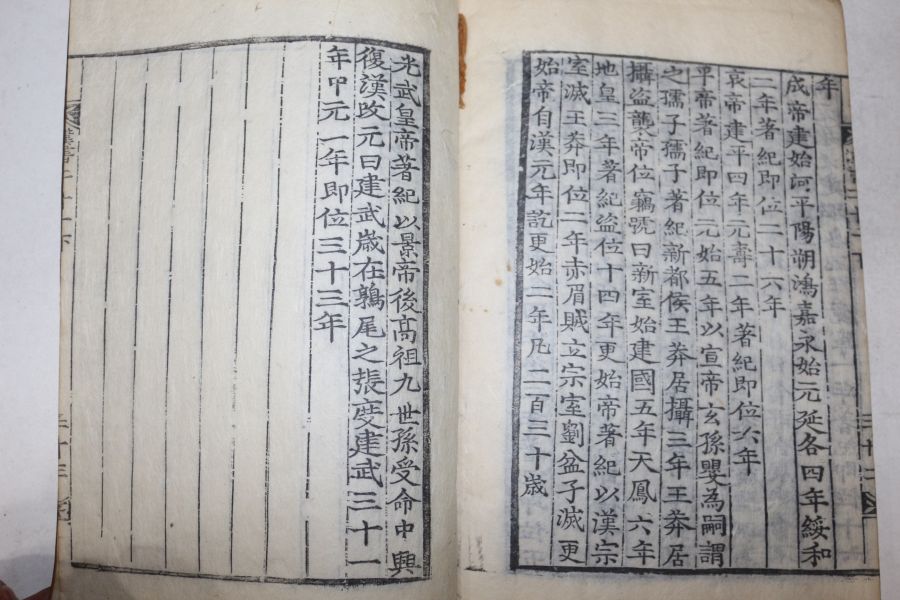 年
成帝建始河平陽朔鴻嘉永始元延各四年綏和
二年著紀即位二十六年
哀帝建平四年元壽二年著紀即位六年
平帝著紀即位元始五年以宣帝玄孫嬰為嗣謂
之孺子孺子著紀新都侯王莽居攝三年王莽居
攝盜襲帝位竊號曰新室始建國五年天鳳六年
地皇三年著紀盜位十四年更始帝著紀以漢宗
室滅王莽即位二年赤眉賊立宗室劉盆子滅更
始帝自漢元年訖更始二年凡二百三十歲
光武皇帝著紀以景帝後高祖九世孫受命中興
復漢改元曰建武歲在鶉尾之張度建武三十一
年甲元一年即位三十三年